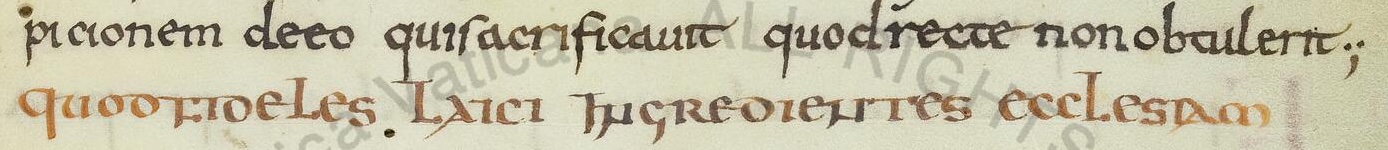 picionem deeo qui sacrificauit quod recte non obtulerit;
quod fideles Laici Ingredientes ecclesiam